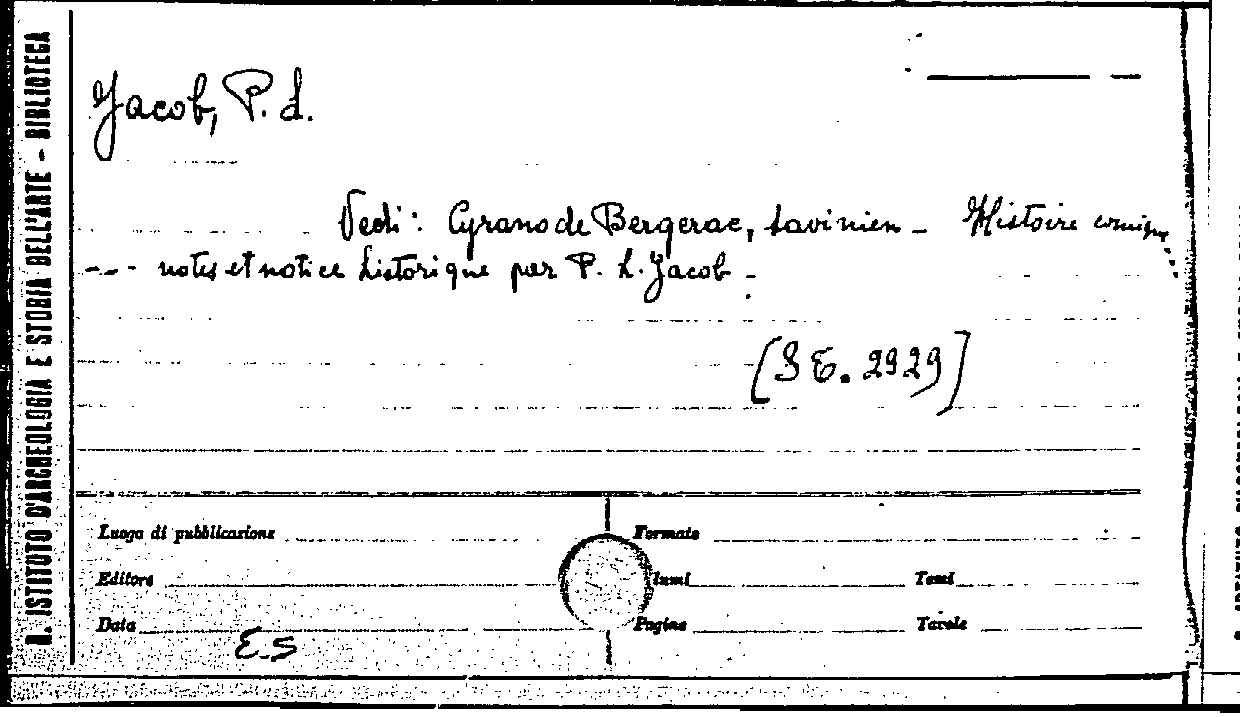 R. ISTITUTO D'ARCHEOLOGIA E STORIA DELL'ARTE - BIBLIOTECA
Jacob, P. L.
Vedi: Cyrano de Bergerac, Savinien - Histoire comique
--- notes et notice historique par P. L. Jacob -
[SE. 2929]
Luogo di pubblicazione
Formato
Editore
lumi
Tomi
Data
E.S
Pagine
Tavole